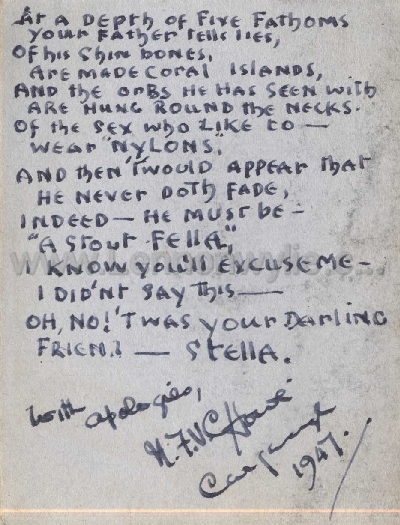 At a Depth of Five Fathoms
your Father tells lies,
Of his Shin bones,
Are made Coral Islands,
And the orbs he has seen with
Are hung round the necks.
Of the sex who like to —
wear "Nylons".
And then 'twould appear that
he never doth fade,
Indeed — he must be —
"A stout fella",
I know you'll excuse me —
I did'nt say this —
Oh, no! 'twas your Darling
Friend — Stella.
with apologies,
1947.